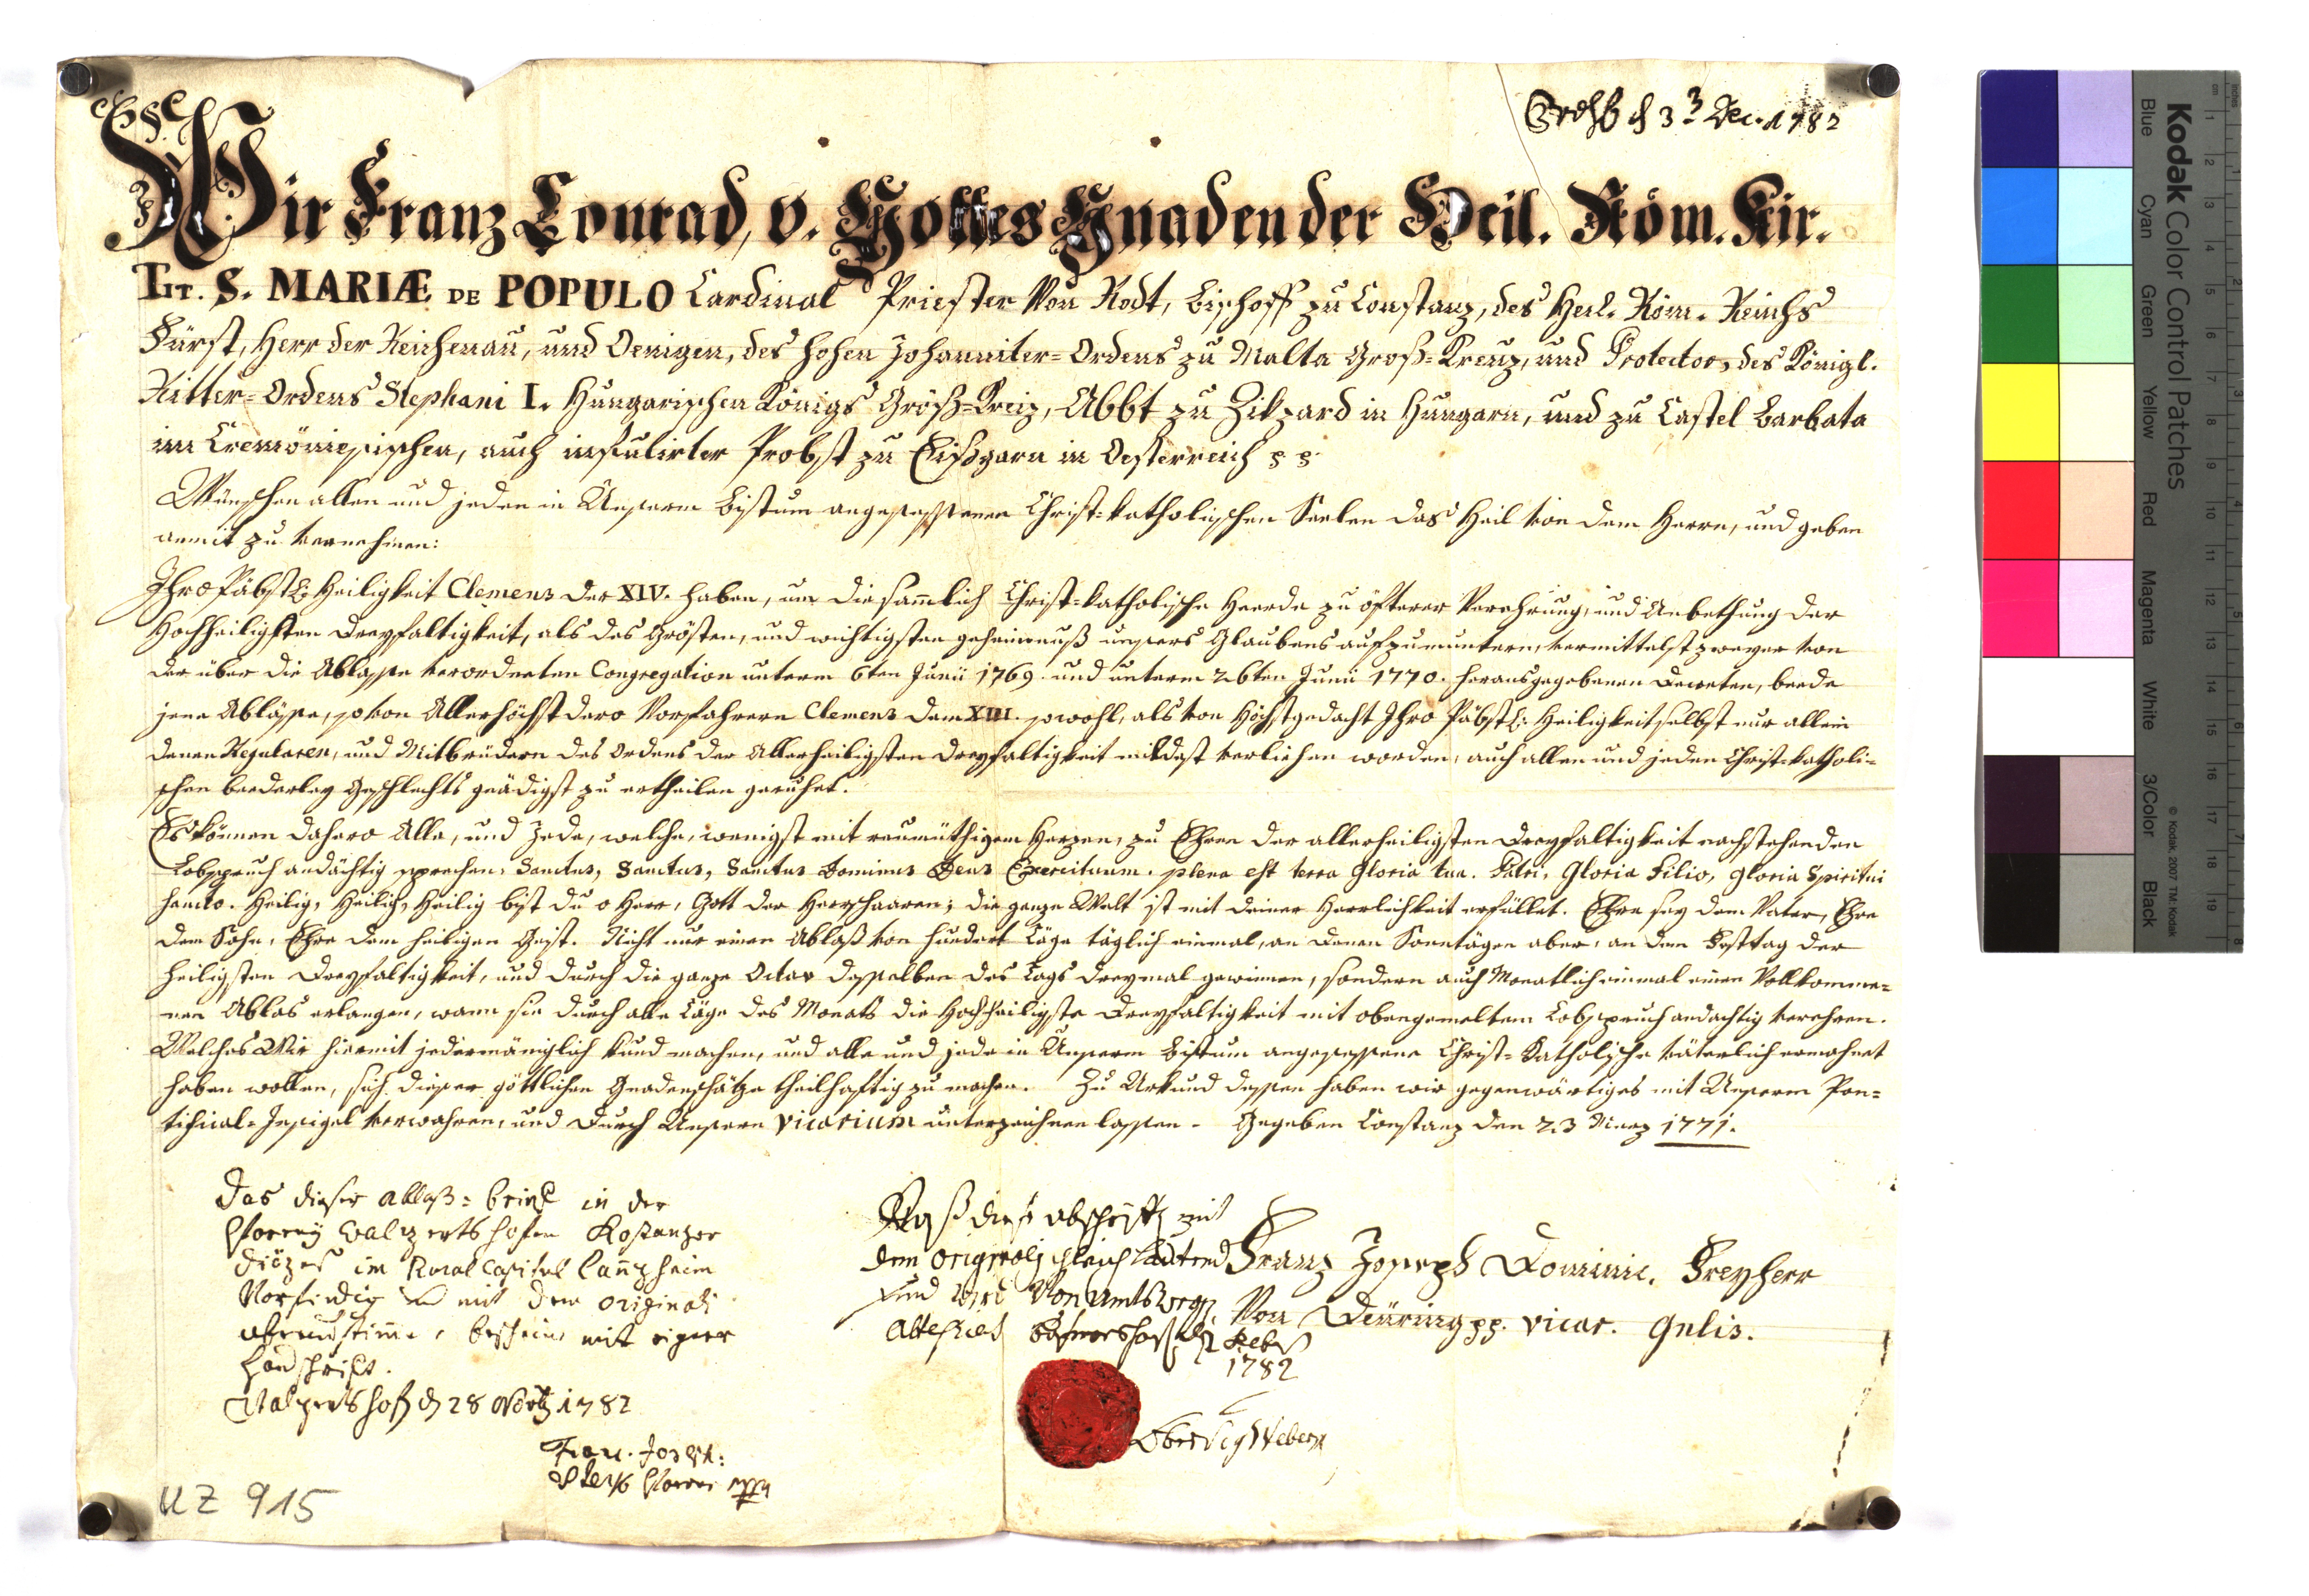 3. Dec. 1782
Wir Franz Conrad, v. Gottes Gnaden der Heil. Röm. Kir.
TIT. S. MARIÆ DE POPULO Cardinal Priester Von Rodt, Bischoff zu Constanz, des Heil. Röm. Reichs
Fürst, Herr der Reichenau, und Oeningen, des hohen Johanniter-Ordens zu Malta Groß-Kreuz, und Protector, des Königl.
Ritter-Ordens Stephani I. Hungarischen Königs Groß-Kreiz, Abbt zu Zikzard in Hungarn, und zu Castel Barbata
im Cremonesischen, auch infulirter Probst zu Eißgarn in Oesterreich p p.
Wünschen allen und jeden in Unserm Bistum angesessenen Christ-katholischen Seelen das Heil von dem Herrn, und geben
anmit zu vernehmen:
Ihro Päbstl: Heiligkeit Clemens der XIV. haben, um die sämtlich Christ-katholische Heerde zu öfterer Verehrung, und Anbethung der
Hochheiligsten Dreyfaltigkeit, als des Grösten, und wichtigsten geheimnuß unsers Glaubens aufzumuntern, vermittelst zweyer von
der über die Ablasse verordneten Congregation unterm 6ten Junii 1769. und unterm 26ten Junii 1770. herausgegebenen Decreten, beede
jene Abläße, so von Allerhöchst dero Vorfahrern Clemens dem XIII. sowohl, als von Höchstgedacht Ihro Päbstl: Heiligkeit selbst nur allein
denen Regularen, und Mitbrüdern des Ordens der Allerheiligsten Dreyfaltigkeit mildest verliehen worden, auch allen und jeden Christ-katholi-
schen beederley Geschlechts gnädigst zu ertheilen geruhet.
Es können dahero Alle, und Jede, welche, wenigst mit reumüthigem Herzen, zu Ehren der allerheiligsten Dreyfaltigkeit nachstehenden
Lobspruch andächtig sprechen: Sanctus, Sanctus, Sanctus Dominus Deus Exercituum. plena est terra Gloria tua. Gloria Patri, Gloria Filio, gloria Spiritui
Sancto. Heilig, Heilig, Heilig bist du o Herr, Gott der Heerschaaren; die ganze Welt ist mit deiner Herrlichkeit erfüllet. Ehre sey dem Vater, Ehre
dem Sohn, Ehre dem heiligen Geist. Nicht nur einen Ablaß von hundert Täge täglich einmal, an denen Sonntägen aber, an dem Festtag der
heiligsten Dreyfaltigkeit, und durch die ganze Octav desselben des Tags dreymal gewinnen, sondern auch Monatlich einmal einen Vollkomme-
nen Ablas erlangen, wann sie durch alle Täge des Monats die Hochheiligste Dreyfaltigkeit mit obengemeltem Lobspruch andächtig verehren.
Welches Wir hiermit jedermäniglich kund machen, und alle und jede in Unserm Bistum angesessene Christ-Katholische väterlich ermahnet
haben wollen, sich dieser göttlichen Gnadenschätze theilhaftig zu machen. Zu Urkund dessen haben wir gegenwärtiges mit Unserm Pon-
tifical-Insigel verwahren, und durch Unsern Vicarium unterzeichnen lassen. Gegeben Constanz den 23 Merz 1771.
Franz Joseph Dominic. Freyherr
Von Deüring pp. vicar. Gnlis.
Das dieser ablaß-brief in der
Pfarrey Walzertshofen Kostanzer
Diözes im Rural Capitel
Vorfindig und mit dem originali
übereinstime, bescheine mit eigner
Handschrift.
d 28 1782
Franc. Joseph:
Pfarrer mppa
Daß diese abschrifft mit
dem originali gleich lautend
und wird Von amts wegen
attestiert
1782
UZ 915
Kodak Color Control Patches
Blue Cyan Green Yellow Red Magenta White 3/Color Black
© Kodak, 2007 TM: Kodak
cm 1 2 3 4 5 6 7 8 9 10 11 12 13 14 15 16 17 18 19
inches 1 2 3 4 5 6 7 8